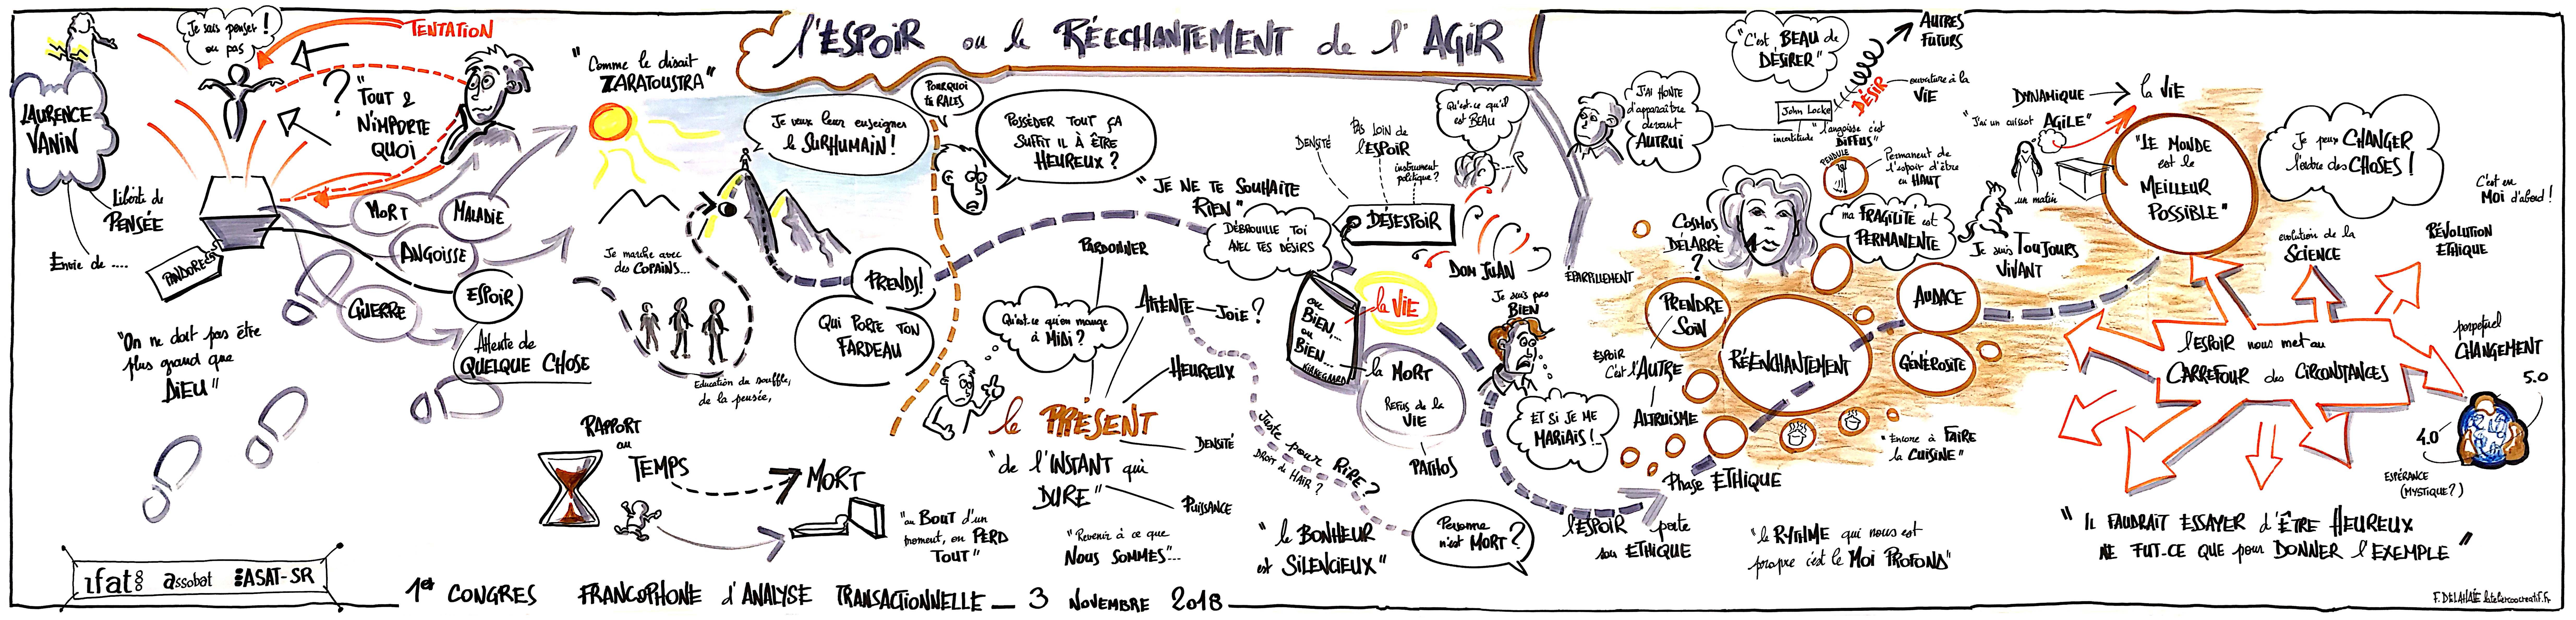 l'ESPOIR ou le RÉECHANTEMENT de l'AGIR
LAURENCE
VANIN
Je sais penser !
ou pas
TENTATION
?
"TOUT &
N'IMPORTE
QUOI
Liberté de
PENSÉE
Envie de ....
PANDORE
MORT
MALADIE
ANGOISSE
GUERRE
ESPOIR
Attente de
QUELQUE CHOSE
"On ne doit pas être
plus grand que
DIEU"
"Comme le disait
ZARATOUSTRA"
Je veux leur enseigner
le SURHUMAIN !
Je marche avec
des COPAINS...
Education du souffle,
de la pensée,
POURQUOI
tu RALES
POSSÈDER TOUT ÇA
SUFFIT IL À ÊTRE
HEUREUX ?
PRENDS!
QUI PORTE TON
FARDEAU
RAPPORT
au
TEMPS
MORT
"au BOUT d'un
moment, on PERD
TOUT"
Qu'est-ce qu'on mange
à MIDI ?
PARDONNER
ATTENTE
JOIE ?
HEUREUX
le PRÉSENT
DENSITÉ
"de l'INSTANT qui
DURE"
PUISSANCE
"Revenir à ce que
NOUS SOMMES"...
"JE NE TE SOUHAITE
RIEN"
DÉBROUILLE TOI
AVEC TES DÉSIRS
DENSITÉ
PAS LOIN de
l'ESPOIR
instrument
politique ?
DÉSESPOIR
Qu'est-ce qu'il
est BEAU
DOM JUAN
ÉPARPILLEMENT
OU
BIEN,...
OU
BIEN...
KIRKEGAARD
la VIE
la MORT
REFUS de la
VIE
PATHOS
Juste pour RIRE ?
DROIT de HAIR ?
"le BONHEUR
est SILENCIEUX"
Personne
n'est MORT ?
Je suis pas
BIEN
ET SI JE ME
MARIAIS !..
l'ESPOIR porte
son ETHIQUE
Phase ETHIQUE
J'AI HONTE
d'apparaître
devant
AUTRUI
"C'est BEAU de
DÉSIRER"
AUTRES
FUTURS
DÉSIR
ouverture à la
VIE
John Locke
incertitude
"l'angoisse c'est
DIFFUS"
PENDULE
Permanent de
l'espoir d'être
en HAUT
COSMOS
DÉLABRÉ
?
ma FRAGILITÉ est
PERMANENTE
PRENDRE
SOIN
ESPOIR
C'est l'AUTRE
ALTRUISME
RÉENCHANTEMENT
AUDACE
GÉNÉROSITÉ
"Encore à FAIRE
la CUISINE"
"le RYTHME qui nous est
propre c'est le MOI PROFOND"
DYNAMIQUE
la VIE
"J'ai un cuissot AGILE"
un matin
Je suis TOUJOURS
VIVANT
"LE MONDE
est le
MEILLEUR
POSSIBLE"
Je peux CHANGER
l'ordre des CHOSES !
C'est en
MOI d'abord !
evolution de la
SCIENCE
RÉVOLUTION
ETHIQUE
l'ESPOIR nous met au
CARREFOUR des CIRCONSTANCES
perpetuel
CHANGEMENT
5.0
4.0
ESPÉRANCE
(MYSTIQUE ?)
"IL FAUDRAIT ESSAYER d'ÊTRE HEUREUX
NE FUT-CE QUE pour DONNER l'EXEMPLE"
ifat
assobat
ASAT-SR
1er CONGRES FRANCOPHONE d'ANALYSE TRANSACTIONNELLE — 3 NOVEMBRE 2018
F. DELAHAIE lateliercocreatif.fr